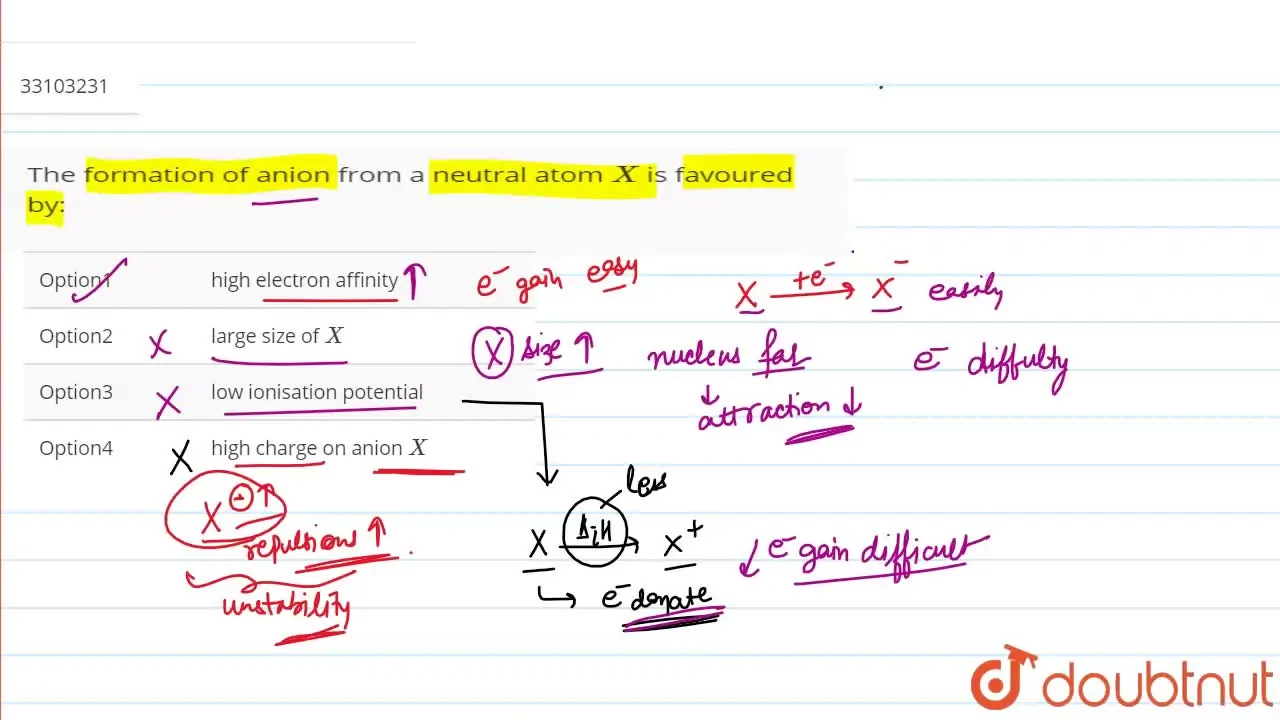 33103231
The formation of anion from a neutral atom X is favoured
by:
Option1 high electron affinity ↑ e⁻ gain easy
X +e⁻ → X⁻ easily
Option2 X large size of X
X size ↑ nucleus far e⁻ diffulty
↓
attraction ↓
Option3 X low ionisation potential
Option4 X high charge on anion X
X ↑
repulsions ↑
unstability
less
X ΔiH → X⁺
↓ e⁻ gain difficult
↳ e⁻ donate
doubtnut